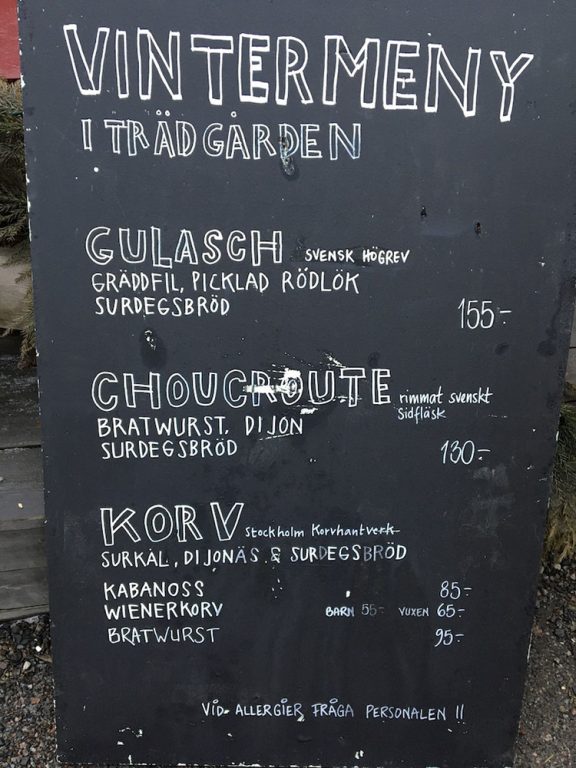 VINTERMENY
I TRÄDGÅRDEN
GULASCH SVENSK HÖGREV
GRÄDDFIL, PICKLAD RÖDLÖK
SURDEGSBRÖD 155:-
CHOUCROUTE rimmat svenskt
Sidfläsk
BRATWURST, DIJON
SURDEGSBRÖD 130:-
KORV Stockholm Korvhantverk
SURKÅL, DIJONÄS & SURDEGSBRÖD
KABANOSS 85:-
WIENERKORV BARN 55:- VUXEN 65:-
BRATWURST 95:-
VID ALLERGIER FRÅGA PERSONALEN !!